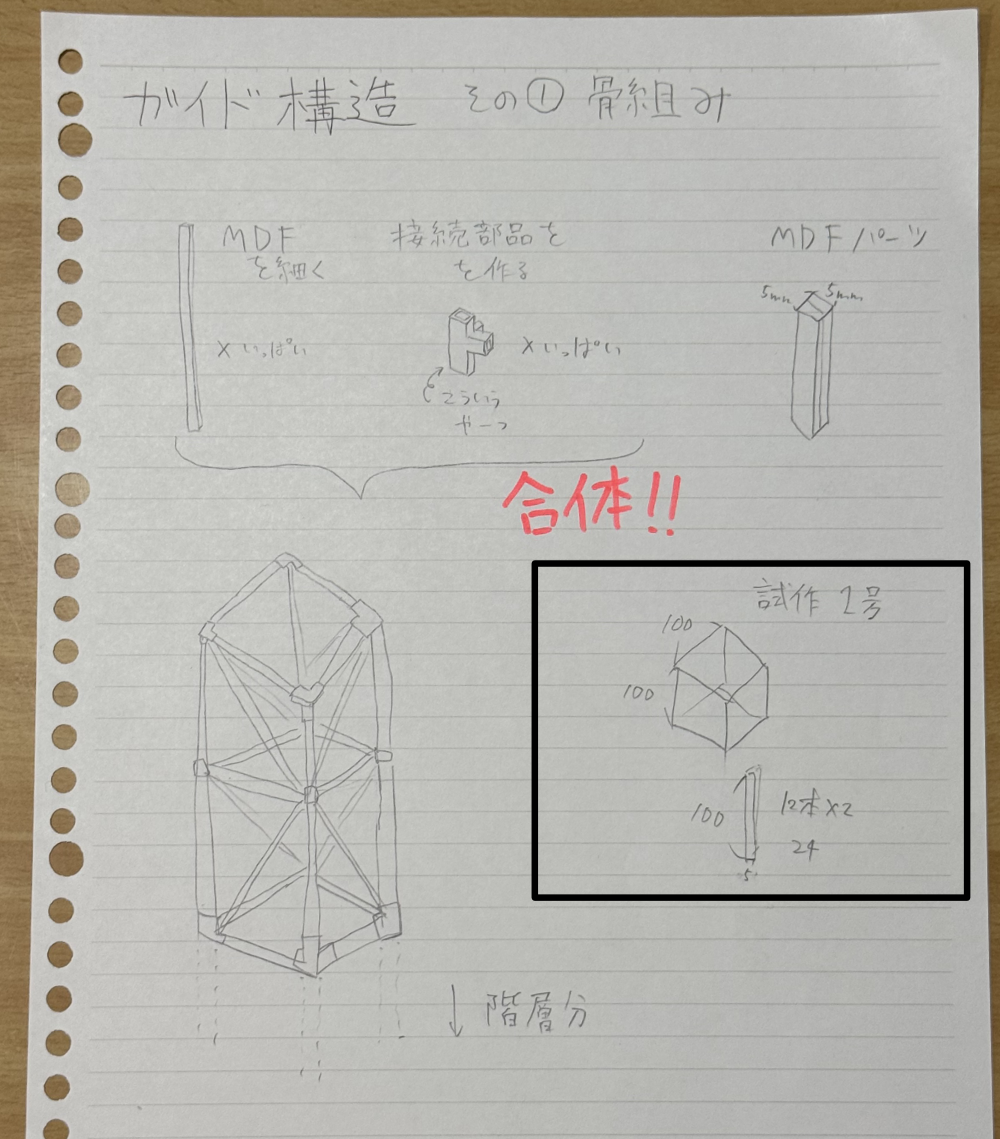 ガイド構造 その① 骨組み
MDF
を細く
×いっぱい
接続部品を
を作る
×いっぱい
こういう
やーつ
MDFパーツ
5mm 5mm
合体!!
試作1号
100
100
100
12本×2
24
5
↓ 階層分